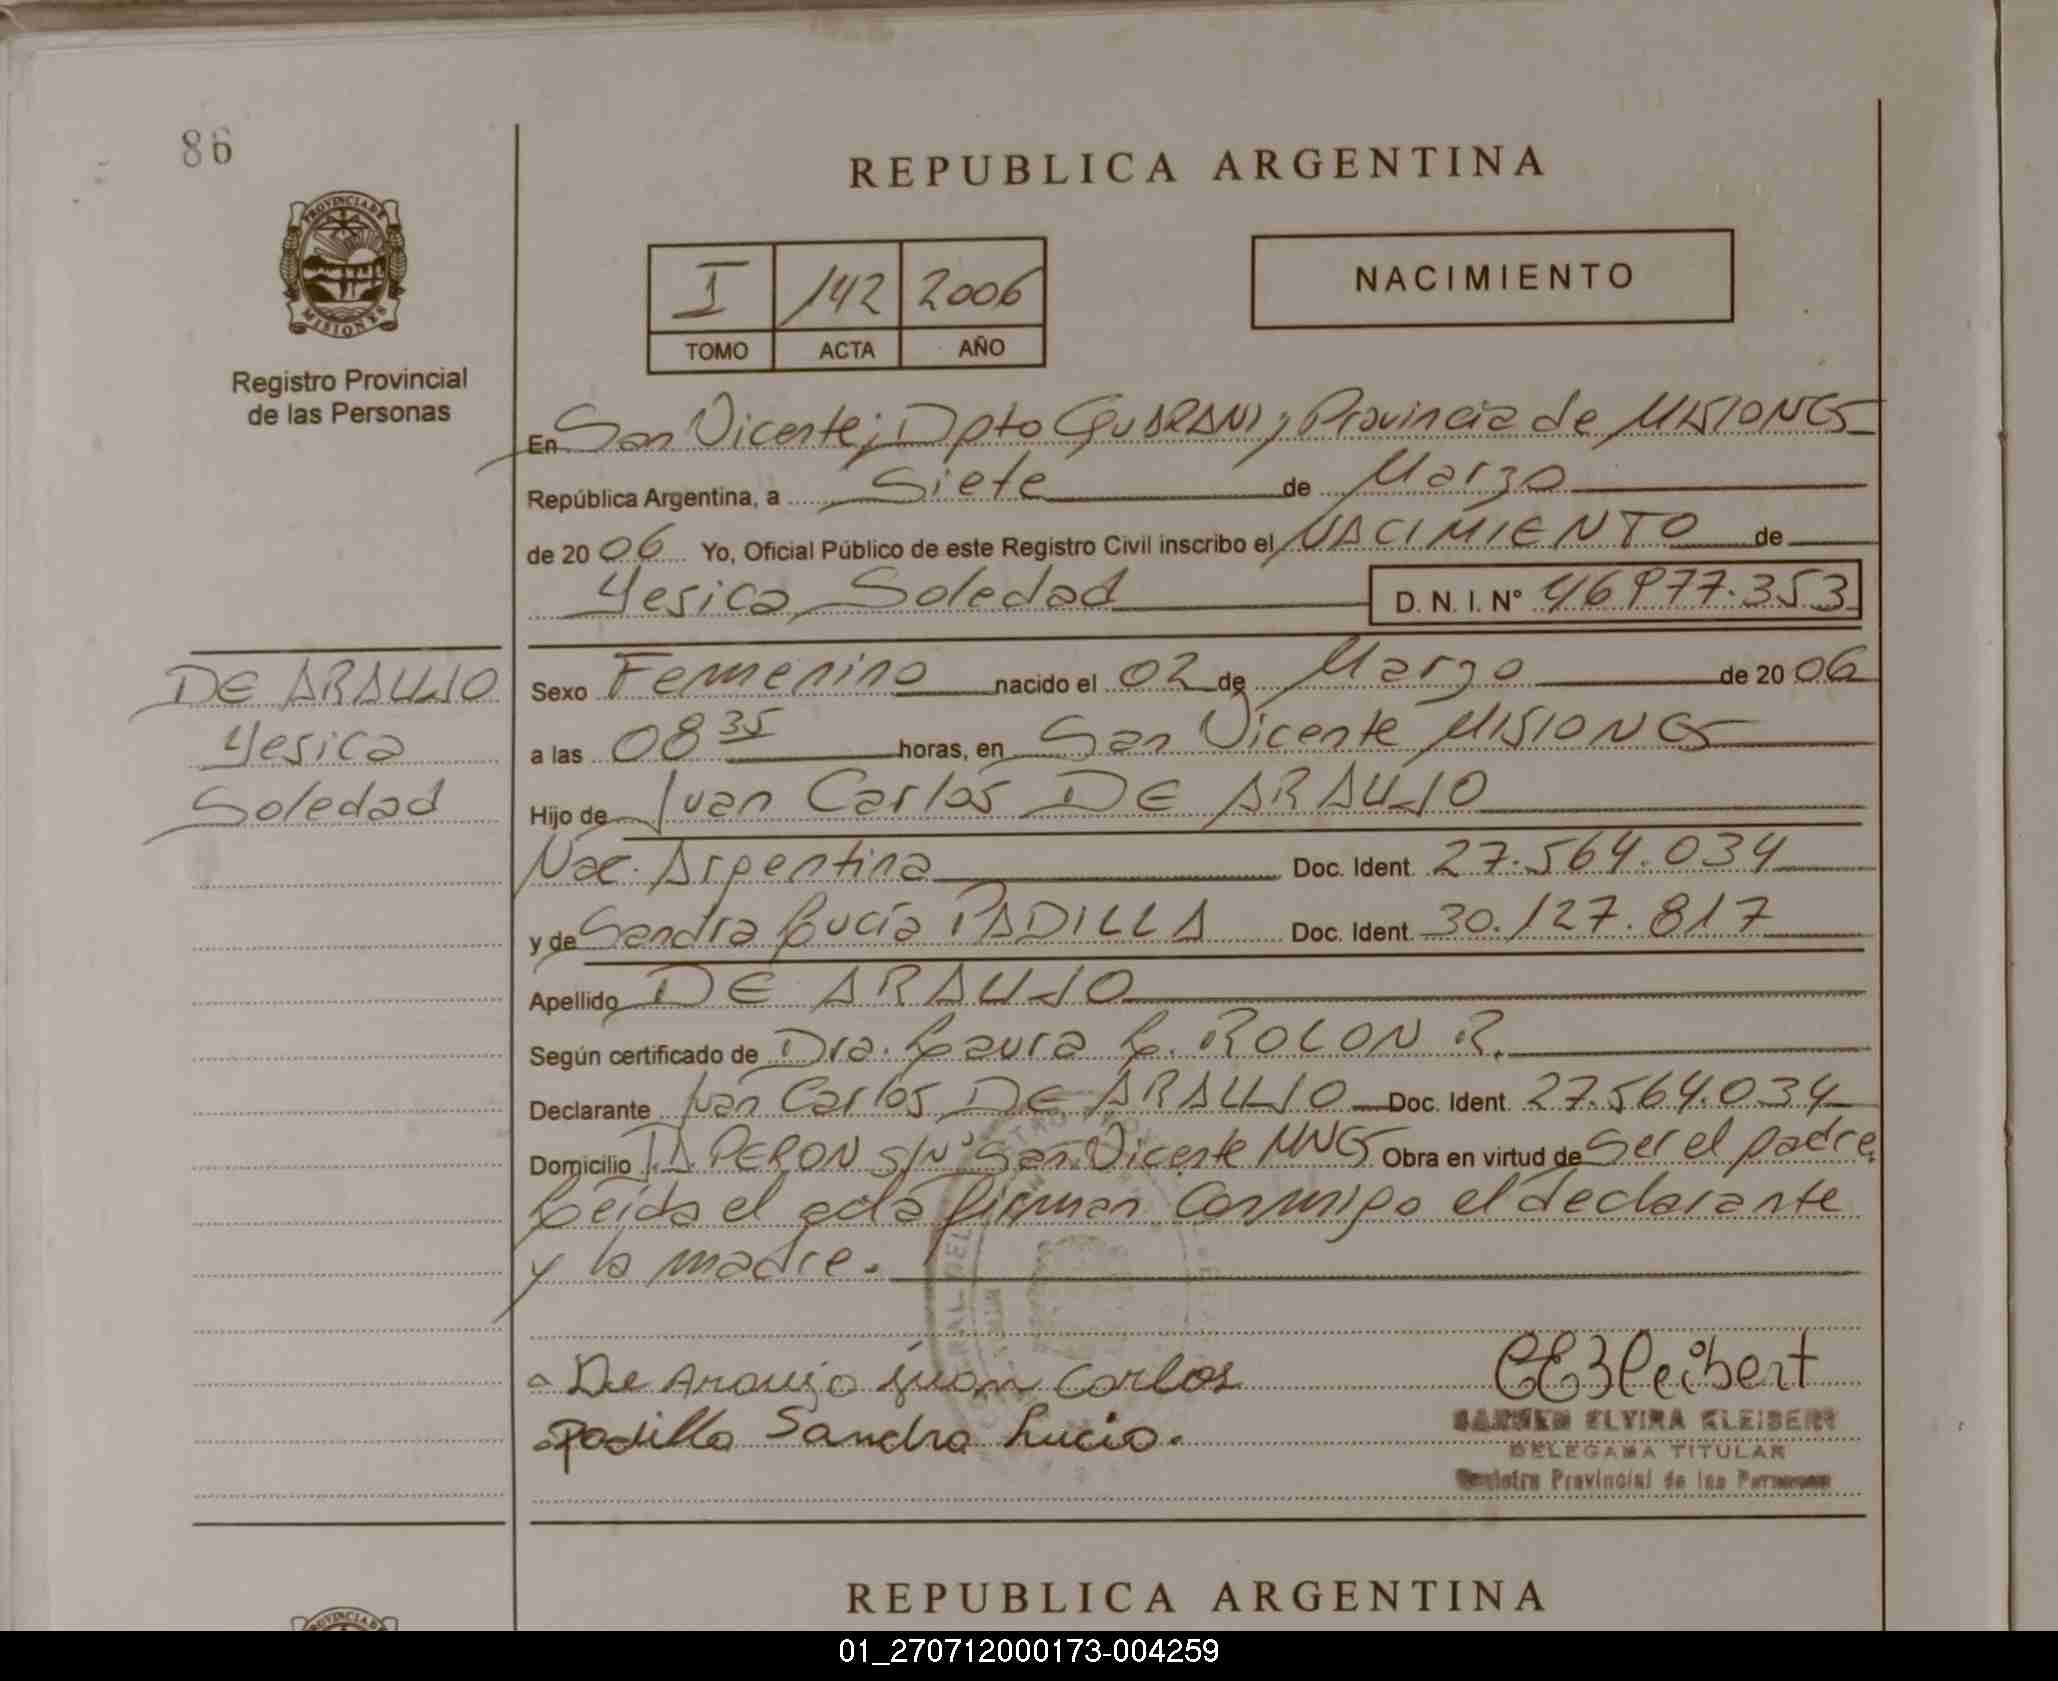 86
REPUBLICA ARGENTINA
PROVINCIA DE
MISIONES
Registro Provincial
de las Personas
I 142 2006
TOMO ACTA AÑO
NACIMIENTO
En San Vicente, Dpto GUARANI, Provincia de MISIONES
República Argentina, a Siete de Marzo
de 2006 Yo, Oficial Público de este Registro Civil inscribo el NACIMIENTO de
Yesica Soledad D. N. I. N° 46977.353
DE ARAUJO
Yesica
Soledad
Sexo Femenino nacido el 02 de Marzo de 2006
a las 08 35 horas, en San Vicente MISIONES
Hijo de Juan Carlos DE ARAUJO
Nac. Argentina Doc. Ident. 27.564.034
y de Sandra Lucía PADILLA Doc. Ident. 30.127.817
Apellido DE ARAUJO
Según certificado de Dra. Laura L. ROLON R.
Declarante Juan Carlos DE ARAUJO Doc. Ident. 27.564.034
Domicilio PERON S/N° San Vicente MNES Obra en virtud de Ser el padre.
Leída el acta firman conmigo el declarante
y la madre.
De Araujo juan Carlos
Padilla Sandra Lucia.
CEKleibert
CARMEN ELVIRA KLEIBERT
DELEGADA TITULAR
Registro Provincial de las Personas
REPUBLICA ARGENTINA
PROVINCIA DE
01_270712000173-004259